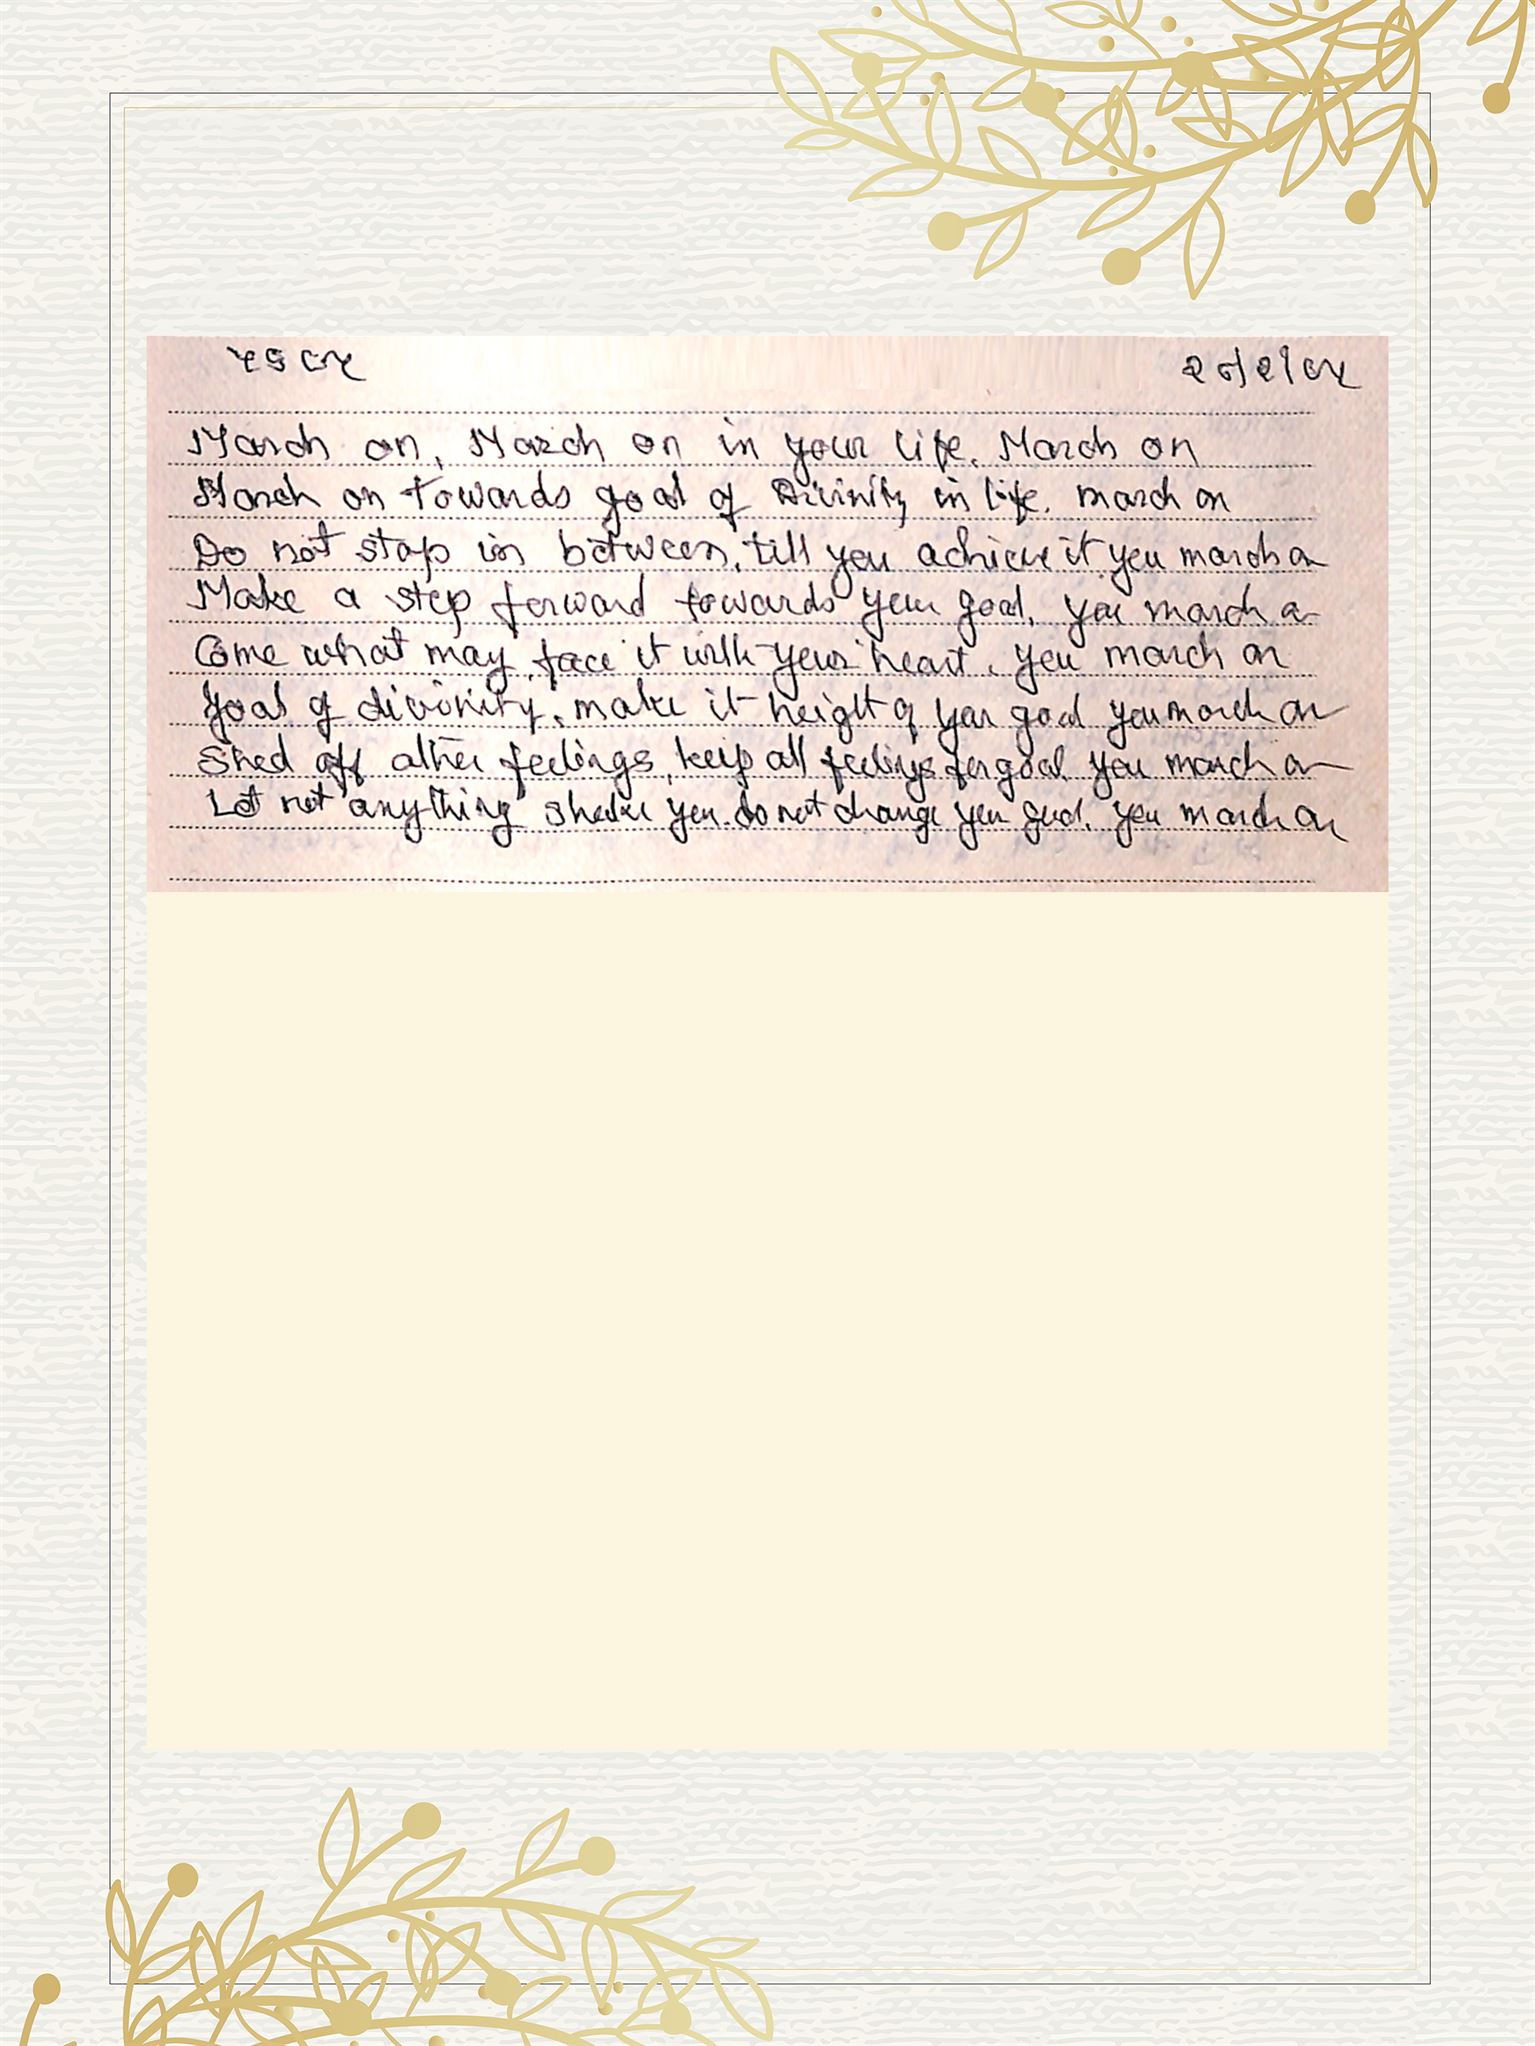 March on, March on in your life. March on
March on towards goal of Divinity in life. march on
Do not stop in between, till you achieve it you march on
Make a step forward towards your goal, you march on
Come what may, face it with your heart, you march on
Goal of divinity, make it height of your goal you march on
Shed off other feelings, keep all feelings for goal you march on
Let not anything shake you do not change your goal, you march on